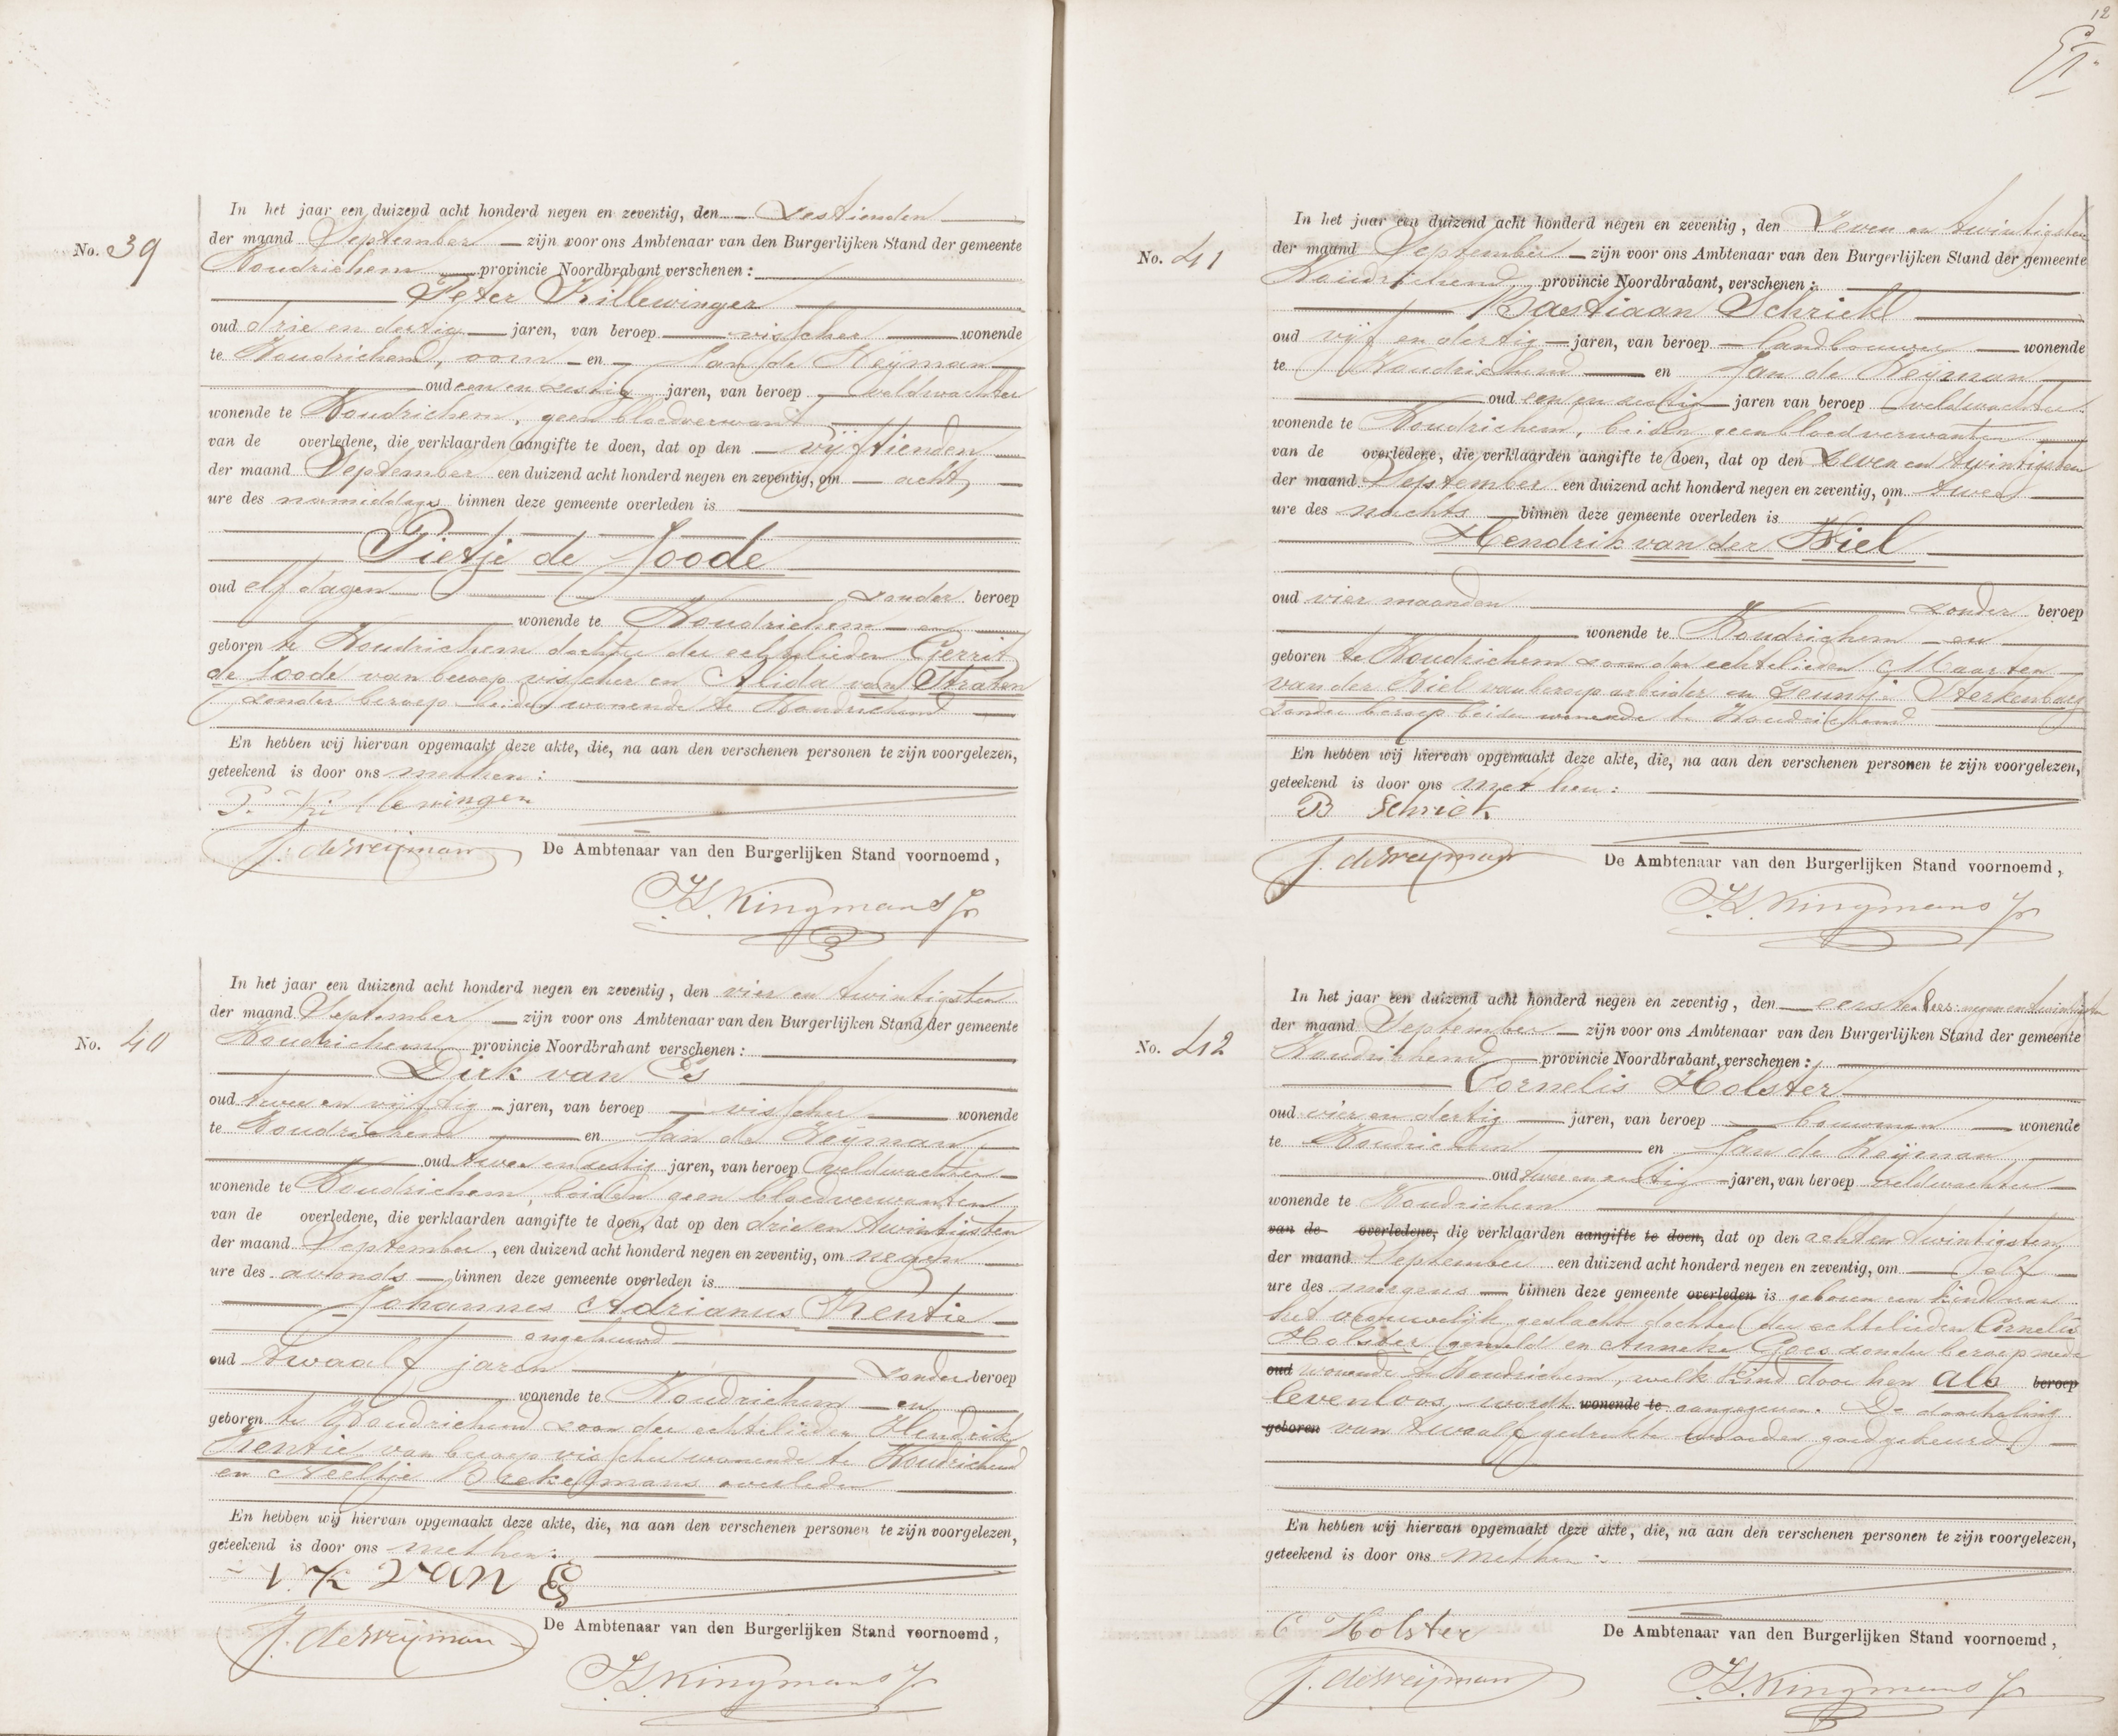 No. 39
In het jaar een duizend acht honderd negen en zeventig, den Zestienden
der maand September zijn voor ons Ambtenaar van den Burgerlijken Stand der gemeente
Woudrichem provincie Noordbrabant verschenen:
Peter Killewinger
oud drie en dertig jaren, van beroep visscher wonende
te Woudrichem, oom en Jan de Weÿman
oud een en zestig jaren, van beroep veldwachter
wonende te Woudrichem, geen bloedverwant
van de overledene, die verklaarden aangifte te doen, dat op den vijftienden
der maand September een duizend acht honderd negen en zeventig, om acht
ure des namiddags binnen deze gemeente overleden is
Pietje de Joode
oud elf dagen zonder beroep
wonende te Woudrichem en
geboren te Woudrichem dochter der echtelieden Gerrit
de Joode van beroep visscher en Alida van Straten
zonder beroep beiden wonende te Woudrichem
En hebben wij hiervan opgemaakt deze akte, die, na aan den verschenen personen te zijn voorgelezen,
geteekend is door ons met hen:
P. Killewinger
J. de Weijman
De Ambtenaar van den Burgerlijken Stand voornoemd,
Kingmans Jr
No. 40
In het jaar een duizend acht honderd negen en zeventig, den vier en twintigsten
der maand September zijn voor ons Ambtenaar van den Burgerlijken Stand der gemeente
Woudrichem provincie Noordbrabant verschenen:
Dirk van Es
oud twee en vijftig jaren, van beroep visscher wonende
te Woudrichem en Jan de Weÿman
oud twee en zestig jaren, van beroep veldwachter
wonende te Woudrichem, beiden geen bloedverwanten
van de overledene, die verklaarden aangifte te doen, dat op den drie en twintigsten
der maand September, een duizend acht honderd negen en zeventig, om negen
ure des avonds binnen deze gemeente overleden is
Johannes Adrianus Kentie
ongehuwd
oud twaalf jaren zonder beroep
wonende te Woudrichem en
geboren te Woudrichem zoon der echtelieden Hendrik
Kentie van beroep visscher wonende te Woudrichem
en Neeltje Brekelmans overleden
En hebben wij hiervan opgemaakt deze akte, die, na aan den verschenen personen te zijn voorgelezen,
geteekend is door ons met hen:
van Es
J. de Weijman
De Ambtenaar van den Burgerlijken Stand voornoemd,
Kingmans Jr
12
No. 41
In het jaar een duizend acht honderd negen en zeventig, den Zeven en twintigsten
der maand September zijn voor ons Ambtenaar van den Burgerlijken Stand der gemeente
Woudrichem provincie Noordbrabant, verschenen:
Bastiaan Schriek
oud vijf en dertig jaren, van beroep landbouwer wonende
te Woudrichem en Jan de Weÿman
oud een en zestig jaren van beroep veldwachter
wonende te Woudrichem, beiden geen bloedverwanten
van de overledene, die verklaarden aangifte te doen, dat op den Zeven en twintigsten
der maand September een duizend acht honderd negen en zeventig, om twee
ure des nachts binnen deze gemeente overleden is
Hendrik van der Wiel
oud vier maanden zonder beroep
wonende te Woudrichem en
geboren te Woudrichem zoon der echtelieden Maarten
van der Wiel van beroep arbeider en Teuntje Sterkenburg
zonder beroep beiden wonende te Woudrichem
En hebben wij hiervan opgemaakt deze akte, die, na aan den verschenen personen te zijn voorgelezen,
geteekend is door ons met hen:
B Schriek
J. de Weijman
De Ambtenaar van den Burgerlijken Stand voornoemd,
Kingmans Jr
No. 42
In het jaar een duizend acht honderd negen en zeventig, den eersten lees: negen en twintigsten
der maand September zijn voor ons Ambtenaar van den Burgerlijken Stand der gemeente
Woudrichem provincie Noordbrabant, verschenen:
Cornelis Holster
oud vier en dertig jaren, van beroep bouwman wonende
te Woudrichem en Jan de Weÿman
oud twee en zestig jaren, van beroep veldwachter
wonende te Woudrichem
van de overledene, die verklaarden aangifte te doen, dat op den acht en twintigsten
der maand September een duizend acht honderd negen en zeventig, om elf
ure des morgens binnen deze gemeente overleden is geboren een kind van
het vrouwelijk geslacht dochter der echtelieden Cornelis
Holster gemeld en Anneke Goes zonder beroep mede
oud wonende te Woudrichem, welk kind door hen als beroep
levenloos wordt wonende te aangegeven. De doorhaling
geboren van twaalf gedrukte woorden goedgekeurd
En hebben wij hiervan opgemaakt deze akte, die, na aan den verschenen personen te zijn voorgelezen,
geteekend is door ons met hen:
C Holster
J. de Weijman
De Ambtenaar van den Burgerlijken Stand voornoemd,
Kingmans Jr